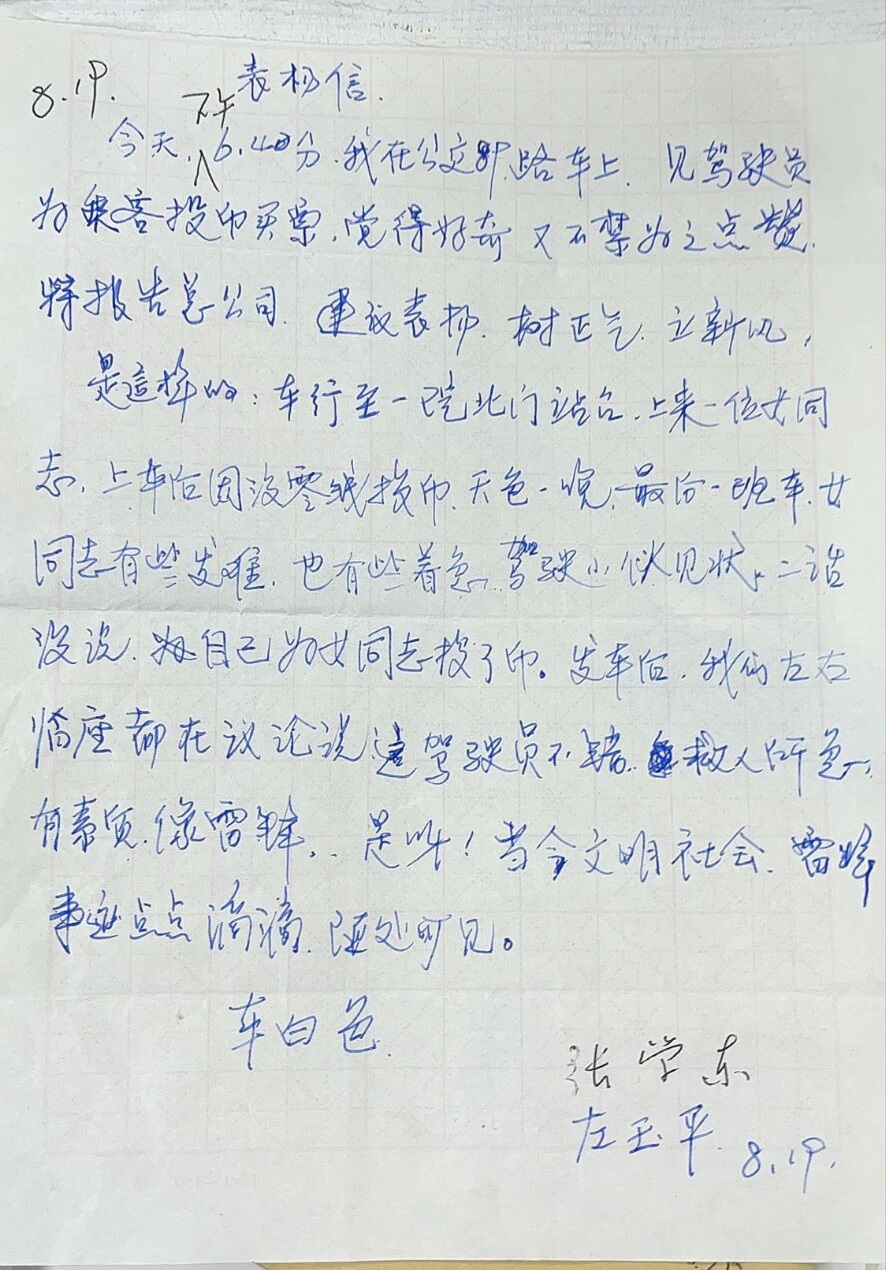 表扬信.
8.19.
下午
今天,6.40分.我在公交路车上.见驾驶员
为乘客投币买票.觉得好奇又不禁为之点赞.
特报告总公司.建议表扬.树正气.立新风,
是这样的:车行至一院北门站台.上来一位女同
志.上车后因没零钱投币.天色一晚.最后一班车.女
同志有些发难.也有些着急.驾驶小伙见状.二话
没说.自己为女同志投了币。发车后.我们左右
临座都在议论说这驾驶员不错.救人所急.
有素质.像雷锋.是吖!当今文明社会.雷锋
事迹点点滴滴.随处可见。
车白色.
张学东
左玉平.8.19.